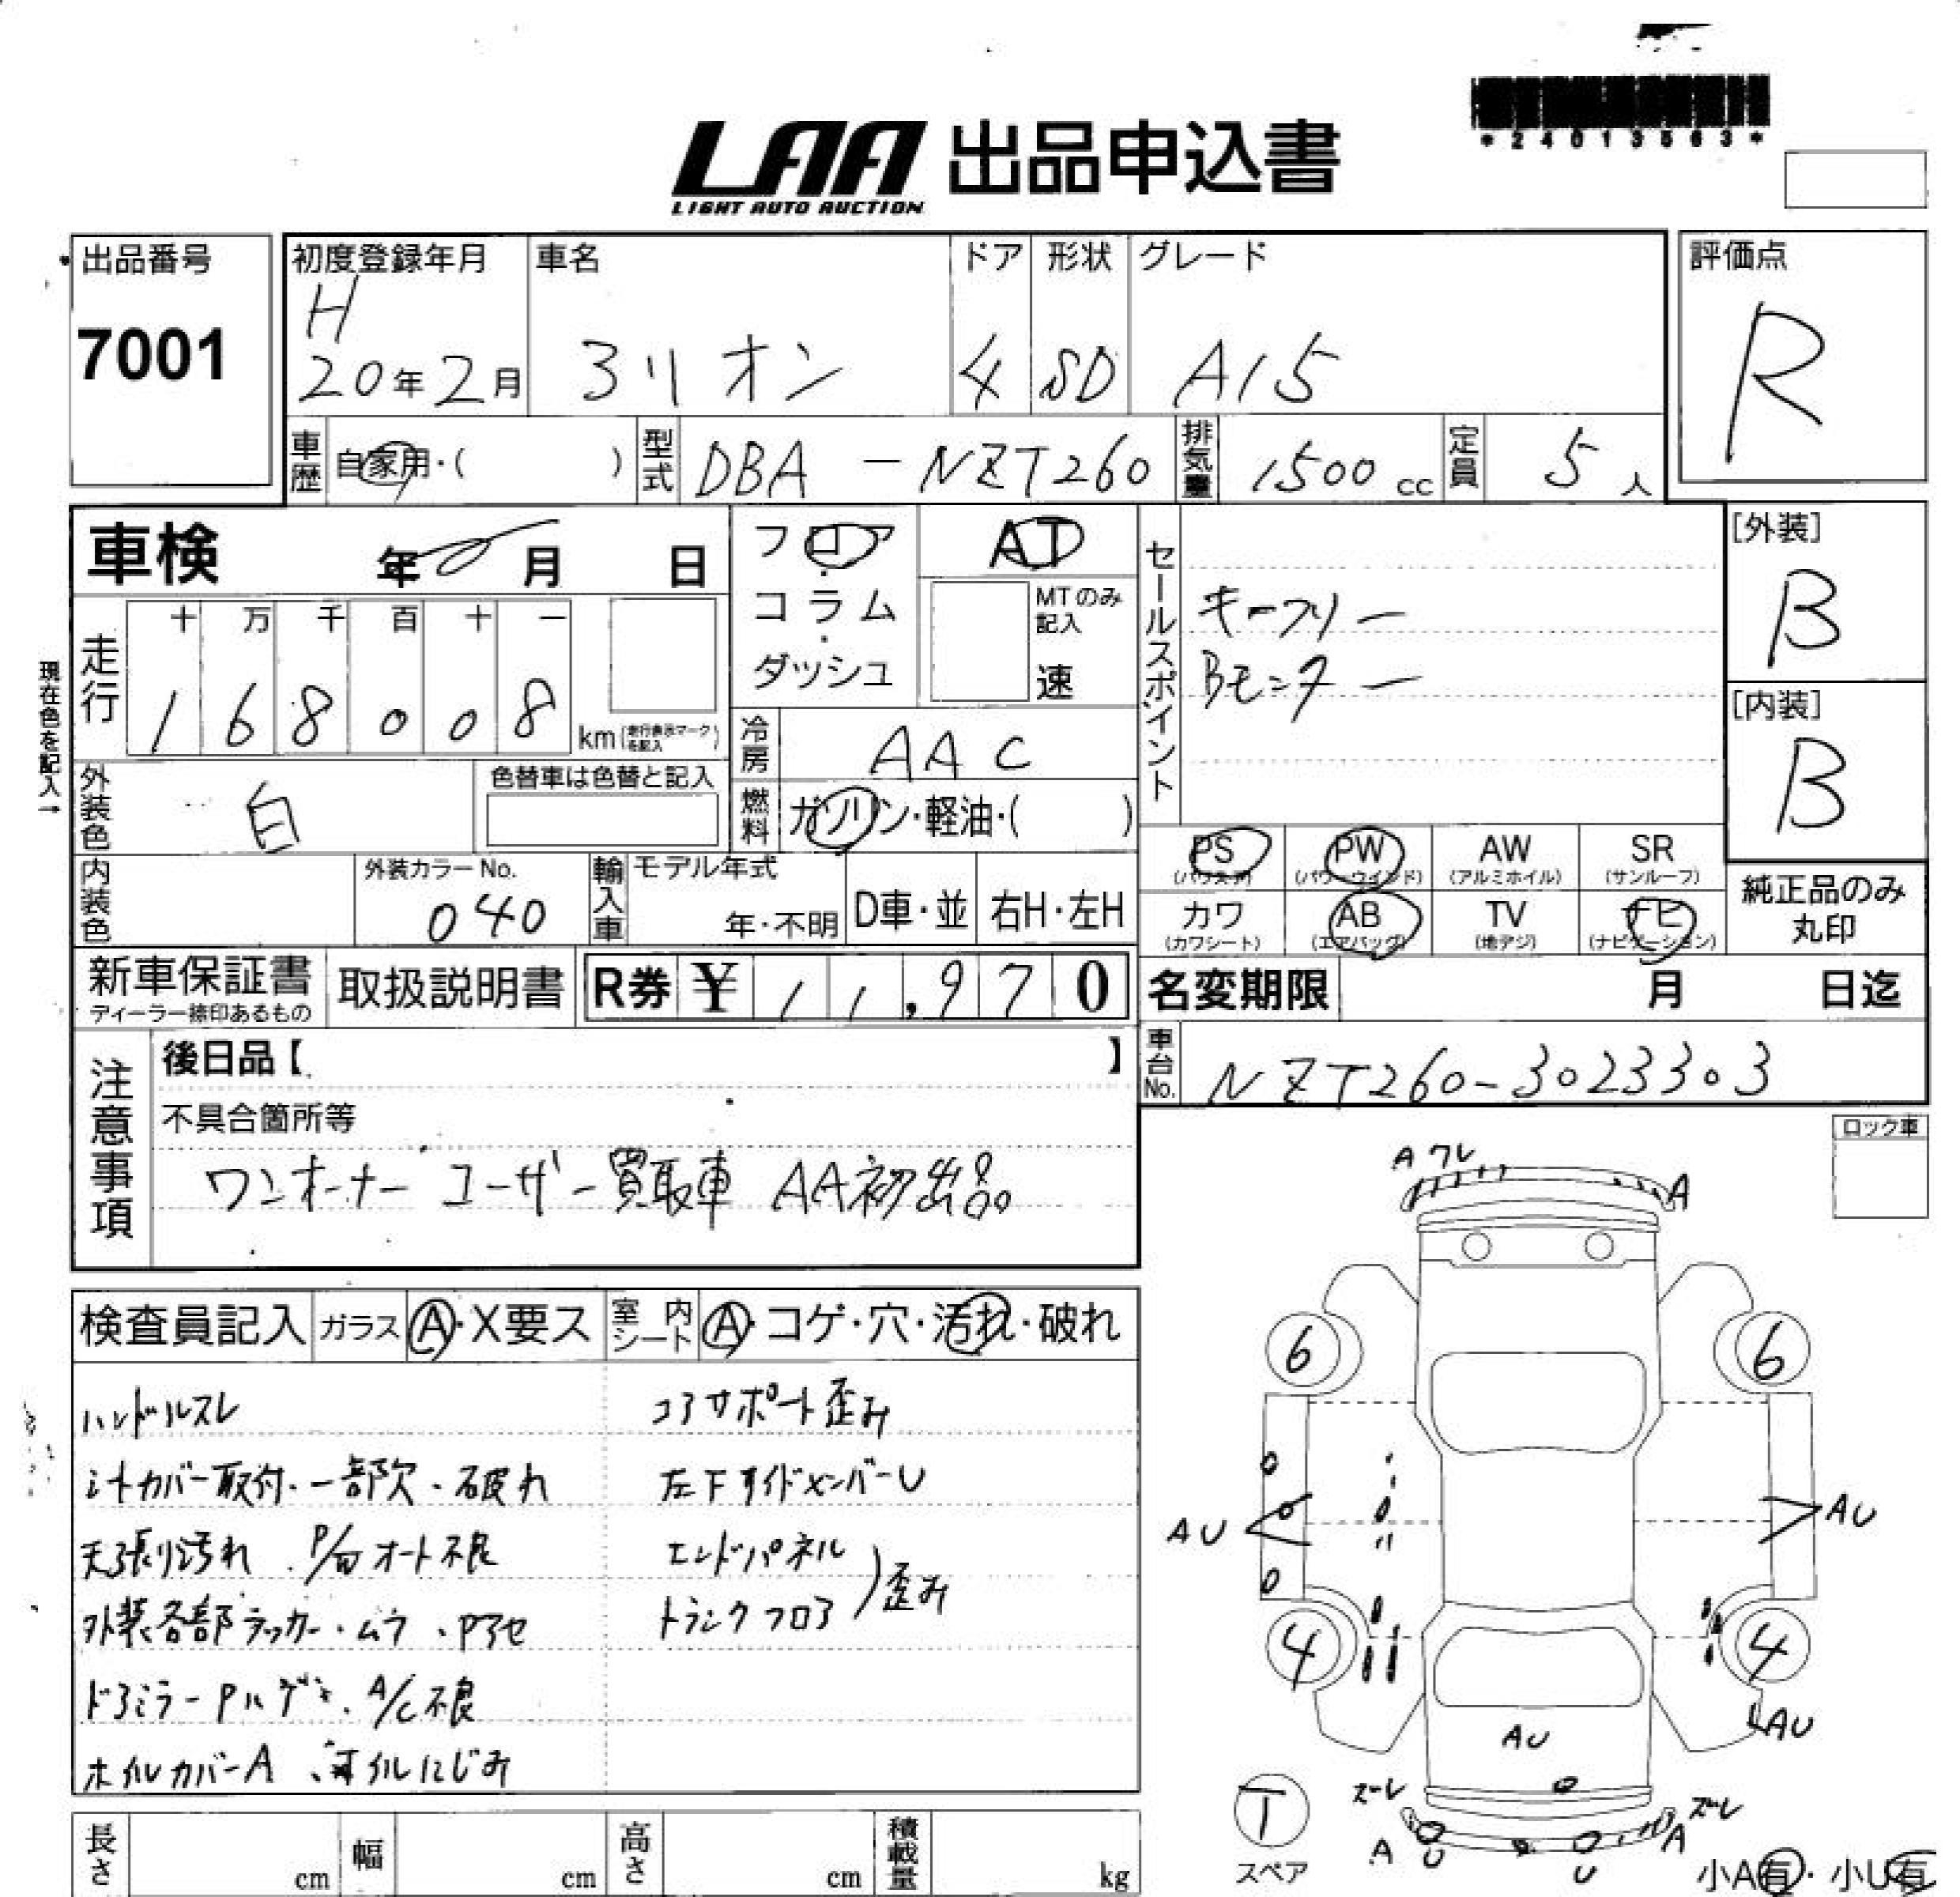 *24013563*
LAA 出品申込書
LIGHT AUTO AUCTION
出品番号 初度登録年月 車名 ドア 形状 グレード 評価点
7001 H 20年2月 3リオン 4 SD A15 R
車歴 自家用・( ) 型式 DBA-NZT260 排気量 1500cc 定員 5人
車検 年 月 日 フロア・コラム・ダッシュ AT MTのみ記入 速
セールスポイント
キーフリー
Bモニター
[外装] B
[内装] B
現在色を記入→
走行 十 万 千 百 十 一
1 6 8 0 0 8 km(走行表示マークを記入)
冷房 AAC
外装色 白 色替車は色替と記入
燃料 ガソリン・軽油・( )
内装色 外装カラーNo. 040 輸入車 モデル年式 年・不明 D車・並 右H・左H
PS (パワステ) PW (パワーウインド) AW (アルミホイル) SR (サンルーフ)
カワ (カワシート) AB (エアバッグ) TV (地デジ) ナビ (ナビゲーション)
純正品のみ丸印
新車保証書 ディーラー捺印あるもの 取扱説明書 R券 ¥ 11,970
名変期限 月 日迄
車台No. NZT260-3023303
注意事項
後日品【 】
不具合箇所等
ワンオーナー ユーザー買取車 AA初出品
検査員記入 ガラス A・X要ス 室内シート A・コゲ・穴・汚れ・破れ
ハンドルスレ
シートカバー取付・一部欠・破れ
天張り汚れ・P/Wオート不良
外装各部ラッカー・ムラ・Pアセ
ドアミラーPハゲ・A/C不良
ホイルカバーA、オイルにじみ
コアサポート歪み
左下サイドメンバーU
エンドパネル
トランクフロア
)歪み
ロック車
A ワレ
A
6
6
AU
AU
4
4
AU
AU
ズレ
ズレ
A U
U A
T
スペア
小A有・小U有
長さ cm 幅 cm 高さ cm 積載量 kg